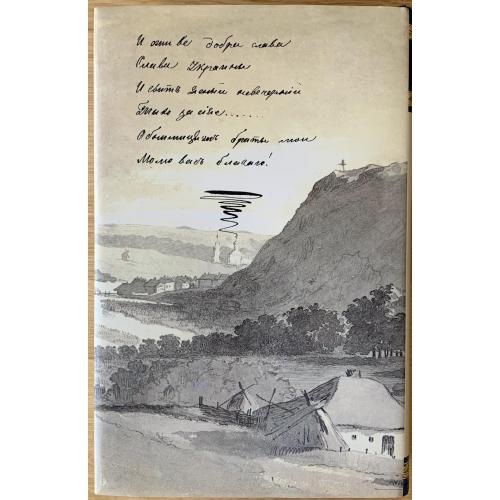 И оживе добра слава
Слава Украины
И свитъ ясный невечерній
Тыхо засіяе......
Обнимицесь браты мои
Молю васъ благаю!